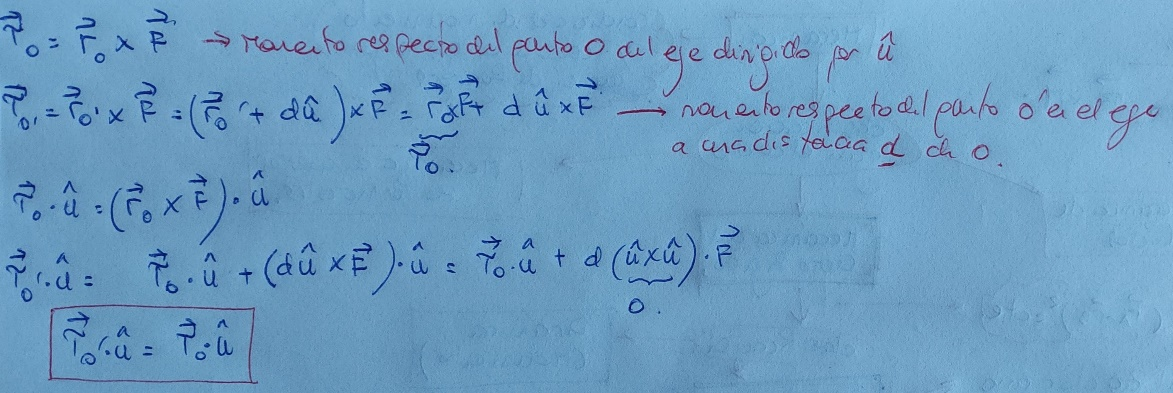 τ⃗₀ = r⃗₀ × F⃗ → momento respecto del punto O del eje dirigido por û
τ⃗₀' = r⃗₀' × F⃗ = (r⃗₀' + dû) × F⃗ = r⃗₀ × F⃗ + d û × F⃗ → momento respecto del punto O' en el eje
τ⃗₀. a una distancia d de O.
τ⃗₀ · û = (r⃗₀ × F⃗) · û
τ⃗₀' · û = τ⃗₀ · û + (dû × F⃗) · û = τ⃗₀ · û + d (û × û) · F⃗
0.
τ⃗₀' · û = τ⃗₀ · û